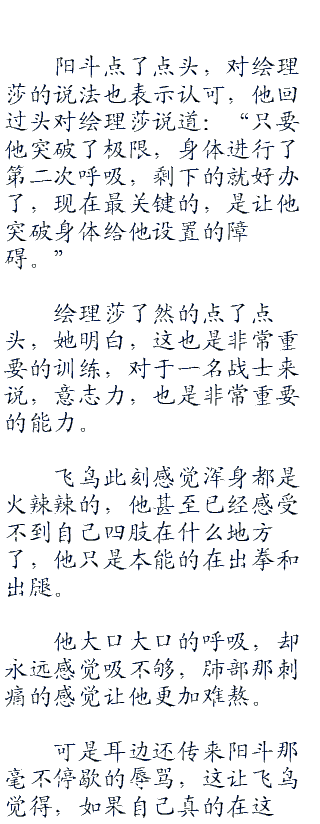 阳斗点了点头，对绘理
莎的说法也表示认可，他回
过头对绘理莎说道：“只要
他突破了极限，身体进行了
第二次呼吸，剩下的就好办
了，现在最关键的，是让他
突破身体给他设置的障
碍。”
绘理莎了然的点了点
头，她明白，这也是非常重
要的训练，对于一名战士来
说，意志力，也是非常重要
的能力。
飞鸟此刻感觉浑身都是
火辣辣的，他甚至已经感受
不到自己四肢在什么地方
了，他只是本能的在出拳和
出腿。
他大口大口的呼吸，却
永远感觉吸不够，肺部那刺
痛的感觉让他更加难熬。
可是耳边还传来阳斗那
毫不停歇的辱骂，这让飞鸟
觉得，如果自己真的在这